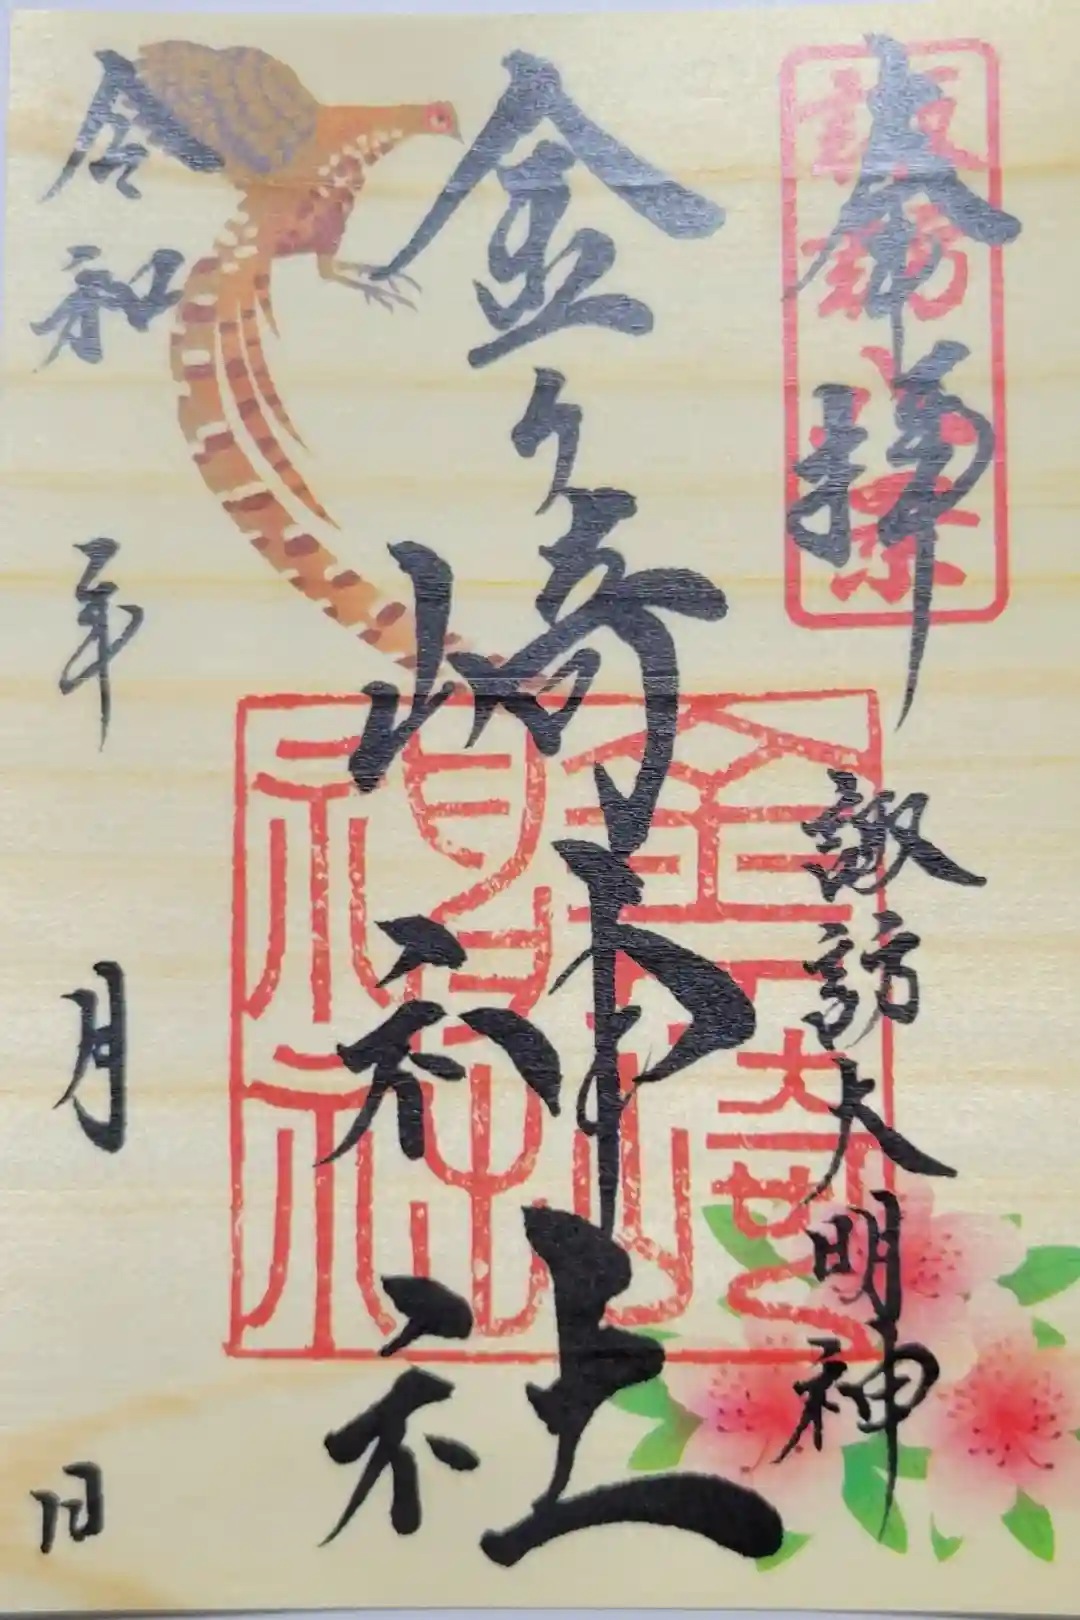 奉拝
諏訪大明神
金ヶ崎神社
令和 年 月 日
金崎
神社